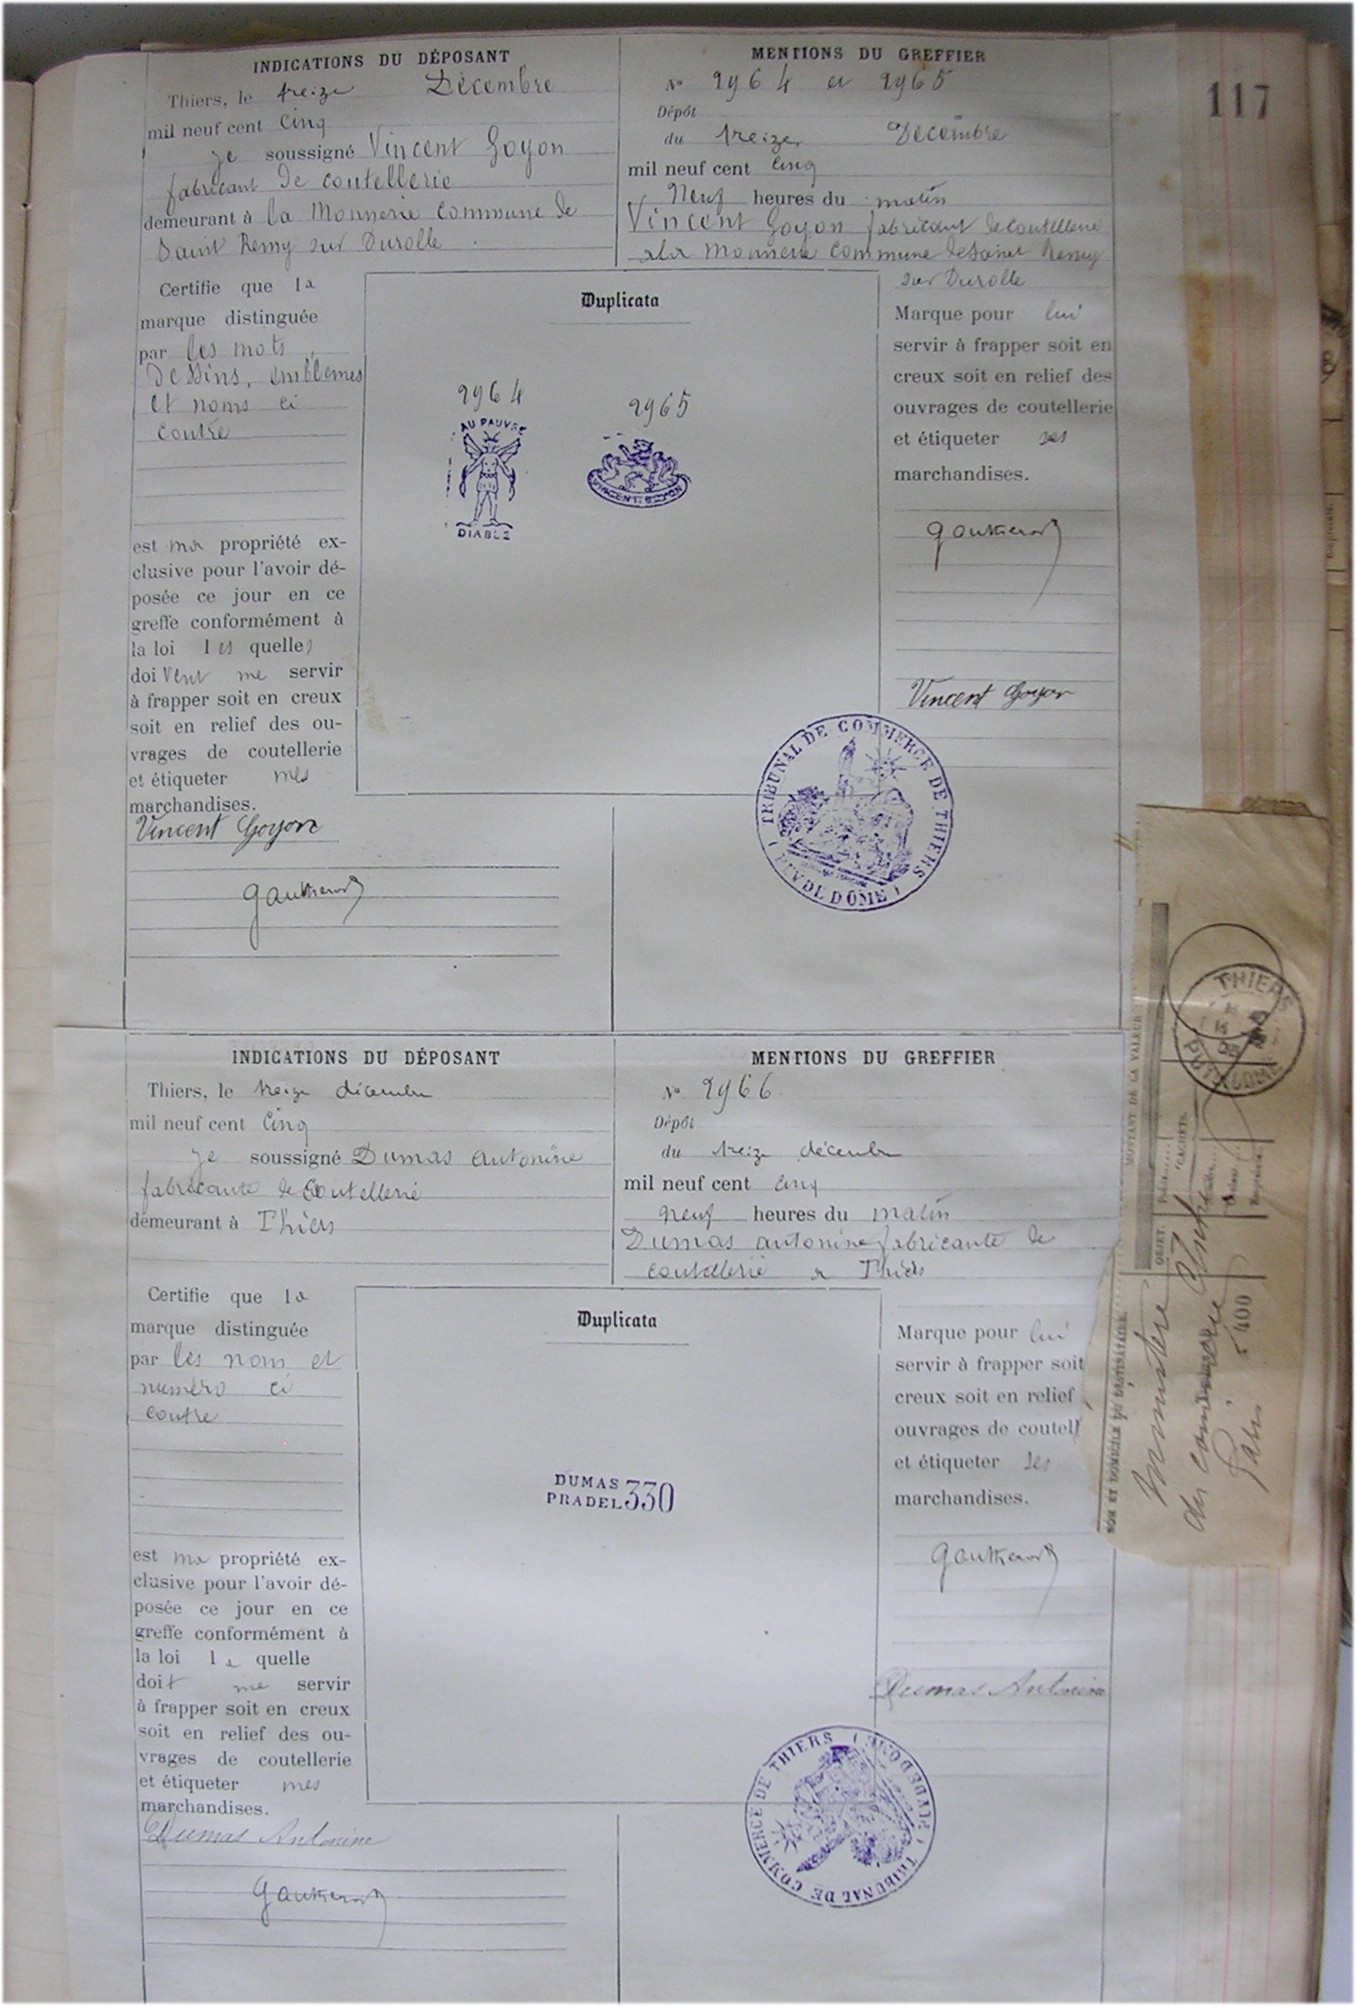 117
INDICATIONS DU DÉPOSANT
Thiers, le treize Décembre
mil neuf cent Cinq
je soussigné Vincent Goyon
fabricant de coutellerie
demeurant à la Monnerie commune de
Saint Remy sur Durolle
Certifie que la
marque distinguée
par les mots,
dessins, emblèmes
et noms ci
contre
est ma propriété ex-
clusive pour l'avoir dé-
posée ce jour en ce
greffe conformément à
la loi les quelles
doivent me servir
à frapper soit en creux
soit en relief des ou-
vrages de coutellerie
et étiqueter mes
marchandises.
Vincent Goyon
MENTIONS DU GREFFIER
No 2964 et 2965
Dépôt
du treize Décembre
mil neuf cent cinq
Neuf heures du matin
Vincent Goyon fabricant de coutellerie
a la Monnerie commune de Saint Remy
sur Durolle
Duplicata
2964
AU PAUVRE
DIABLE
2965
VINCENT GOYON
Marque pour lui
servir à frapper soit en
creux soit en relief des
ouvrages de coutellerie
et étiqueter ses
marchandises.
Vincent Goyon
TRIBUNAL DE COMMERCE DE THIERS
(PUY DE DÔME)
INDICATIONS DU DÉPOSANT
Thiers, le treize décembre
mil neuf cent Cinq
je soussigné Dumas Antonine
fabricante de Coutellerie
demeurant à Thiers
Certifie que la
marque distinguée
par les nom et
numéro ci
contre
est ma propriété ex-
clusive pour l'avoir dé-
posée ce jour en ce
greffe conformément à
la loi la quelle
doit me servir
à frapper soit en creux
soit en relief des ou-
vrages de coutellerie
et étiqueter mes
marchandises.
Dumas Antonine
MENTIONS DU GREFFIER
No 2966
Dépôt
du treize décembre
mil neuf cent cinq
neuf heures du matin
Dumas antonine fabricante de
coutellerie a Thiers
Duplicata
DUMAS
PRADEL 330
Marque pour lui
servir à frapper soit
creux soit en relief
ouvrages de coutell
et étiqueter ses
marchandises.
Dumas Antonine
TRIBUNAL DE COMMERCE DE THIERS
(PUY DE DÔME)
THIERS
PUY-DE-DOME
MONTANT DE LA VALEUR
OBJET.
CACHETS.
NOM ET DOMICILE DU DESTINATAIRE.
Ministère
du commerce
Paris
400